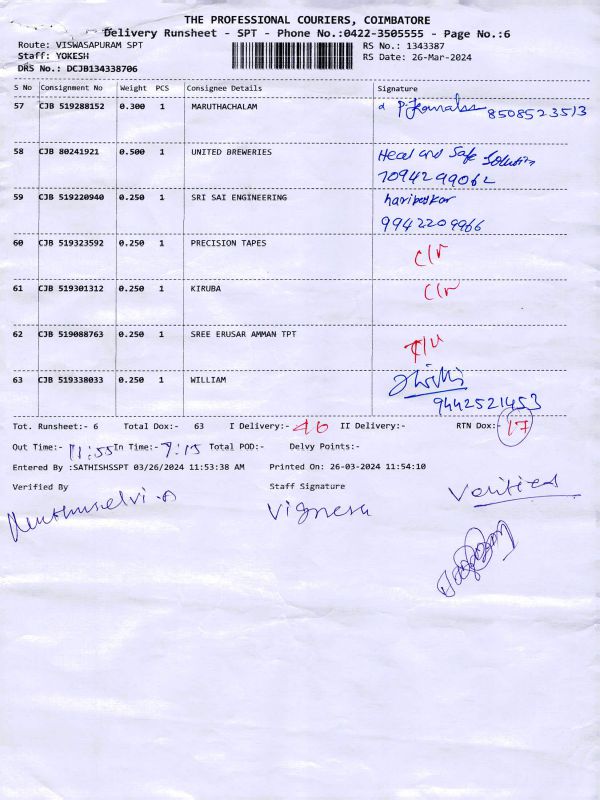 THE PROFESSIONAL COURIERS, COIMBATORE
Delivery Runsheet - SPT - Phone No.:0422-3505555 - Page No.:6
Route: VISWASAPURAM SPT RS No.: 1343387
Staff: YOKESH RS Date: 26-Mar-2024
DRS No.: DCJB134338706
S No Consignment No Weight PCS Consignee Details Signature
57 CJB 519288152 0.300 1 MARUTHACHALAM 8508523513
58 CJB 80241921 0.500 1 UNITED BREWERIES Head and Safe Solution
7094299062
59 CJB 519220940 0.250 1 SRI SAI ENGINEERING
9942209966
60 CJB 519323592 0.250 1 PRECISION TAPES C/r
61 CJB 519301312 0.250 1 KIRUBA C/r
62 CJB 519088763 0.250 1 SREE ERUSAR AMMAN TPT
63 CJB 519338033 0.250 1 WILLIAM
9442521453
Tot. Runsheet:- 6 Total Dox:- 63 I Delivery:- 46 II Delivery:- RTN Dox:- 17
Out Time:- 11:55 In Time:- 7:15 Total POD:- Delvy Points:-
Entered By :SATHISHSSPT 03/26/2024 11:53:38 AM Printed On: 26-03-2024 11:54:10
Verified By Staff Signature Verified
Muthuselvi.A Vignesh